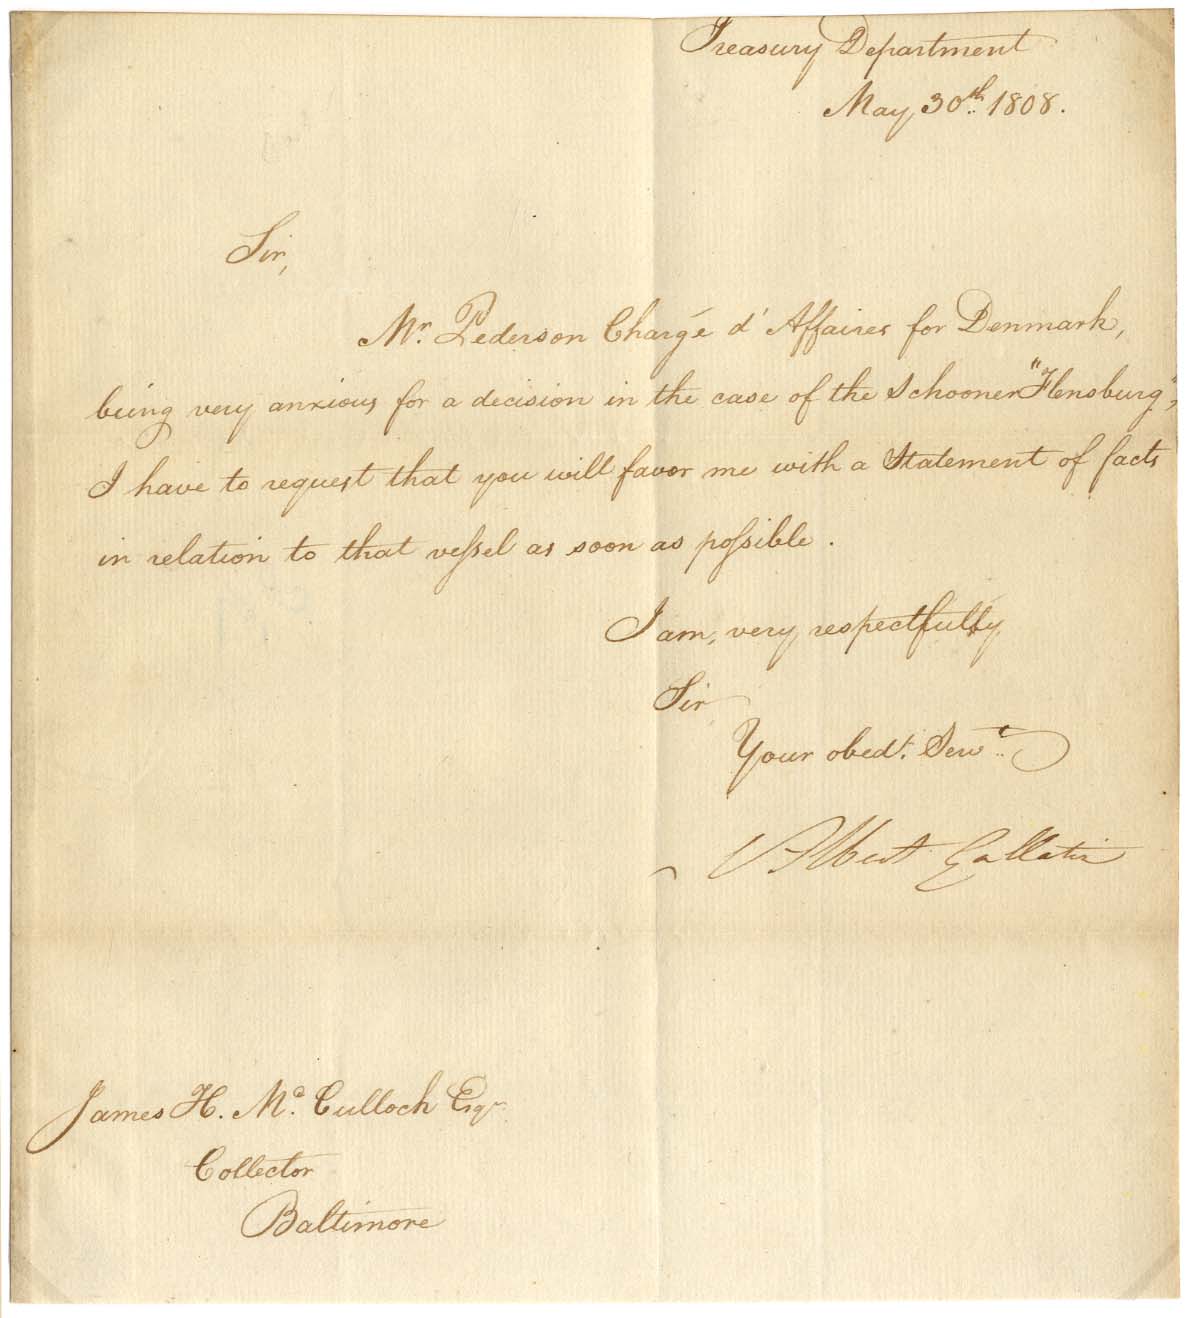 Treasury Department
May 30th 1808.
Sir,
Mr. Pederson Chargé d'Affaires for Denmark,
being very anxious for a decision in the case of the Schooner "Flensburg",
I have to request that you will favor me with a Statement of facts
in relation to that vessel as soon as possible.
I am, very respectfully
Sir
Your obedt. Servt.
Albert Gallatin
James H. Mc. Culloch Esqr
Collector
Baltimore